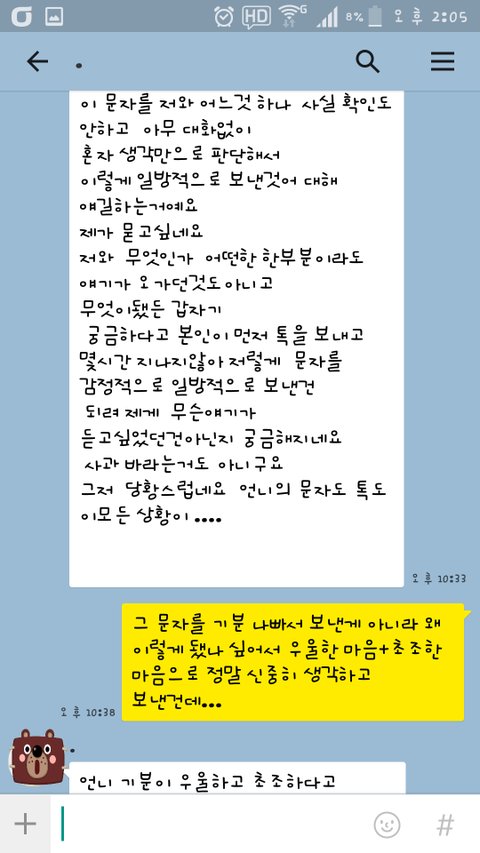 HD G 8% 오후 2:05
.
이 문자를 저와 어느것 하나 사실 확인도
안하고 아무 대화없이
혼자 생각만으로 판단해서
이렇게 일방적으로 보낸것어 대해
얘길하는거예요
제가 묻고싶네요
저와 무엇인가 어떤한 한부분이라도
얘기가 오가던것도아니고
무엇이됐든 갑자기
궁금하다고 본인이 먼저 톡을 보내고
몇시간 지나지않아 저렇게 문자를
감정적으로 일방적으로 보낸건
되려 제게 무슨얘기가
듣고싶었던건아닌지 궁금해지네요
사과 바라는거도 아니구요
그저 당황스럽네요 언니의 문자도 톡도
이모든 상황이 ....
오후 10:33
그 문자를 기분 나빠서 보낸게 아니라 왜
이렇게 됐나 싶어서 우울한 마음+초조한
마음으로 정말 신중히 생각하고
보낸건데...
오후 10:38
.
언니 기분이 우울하고 초조하다고